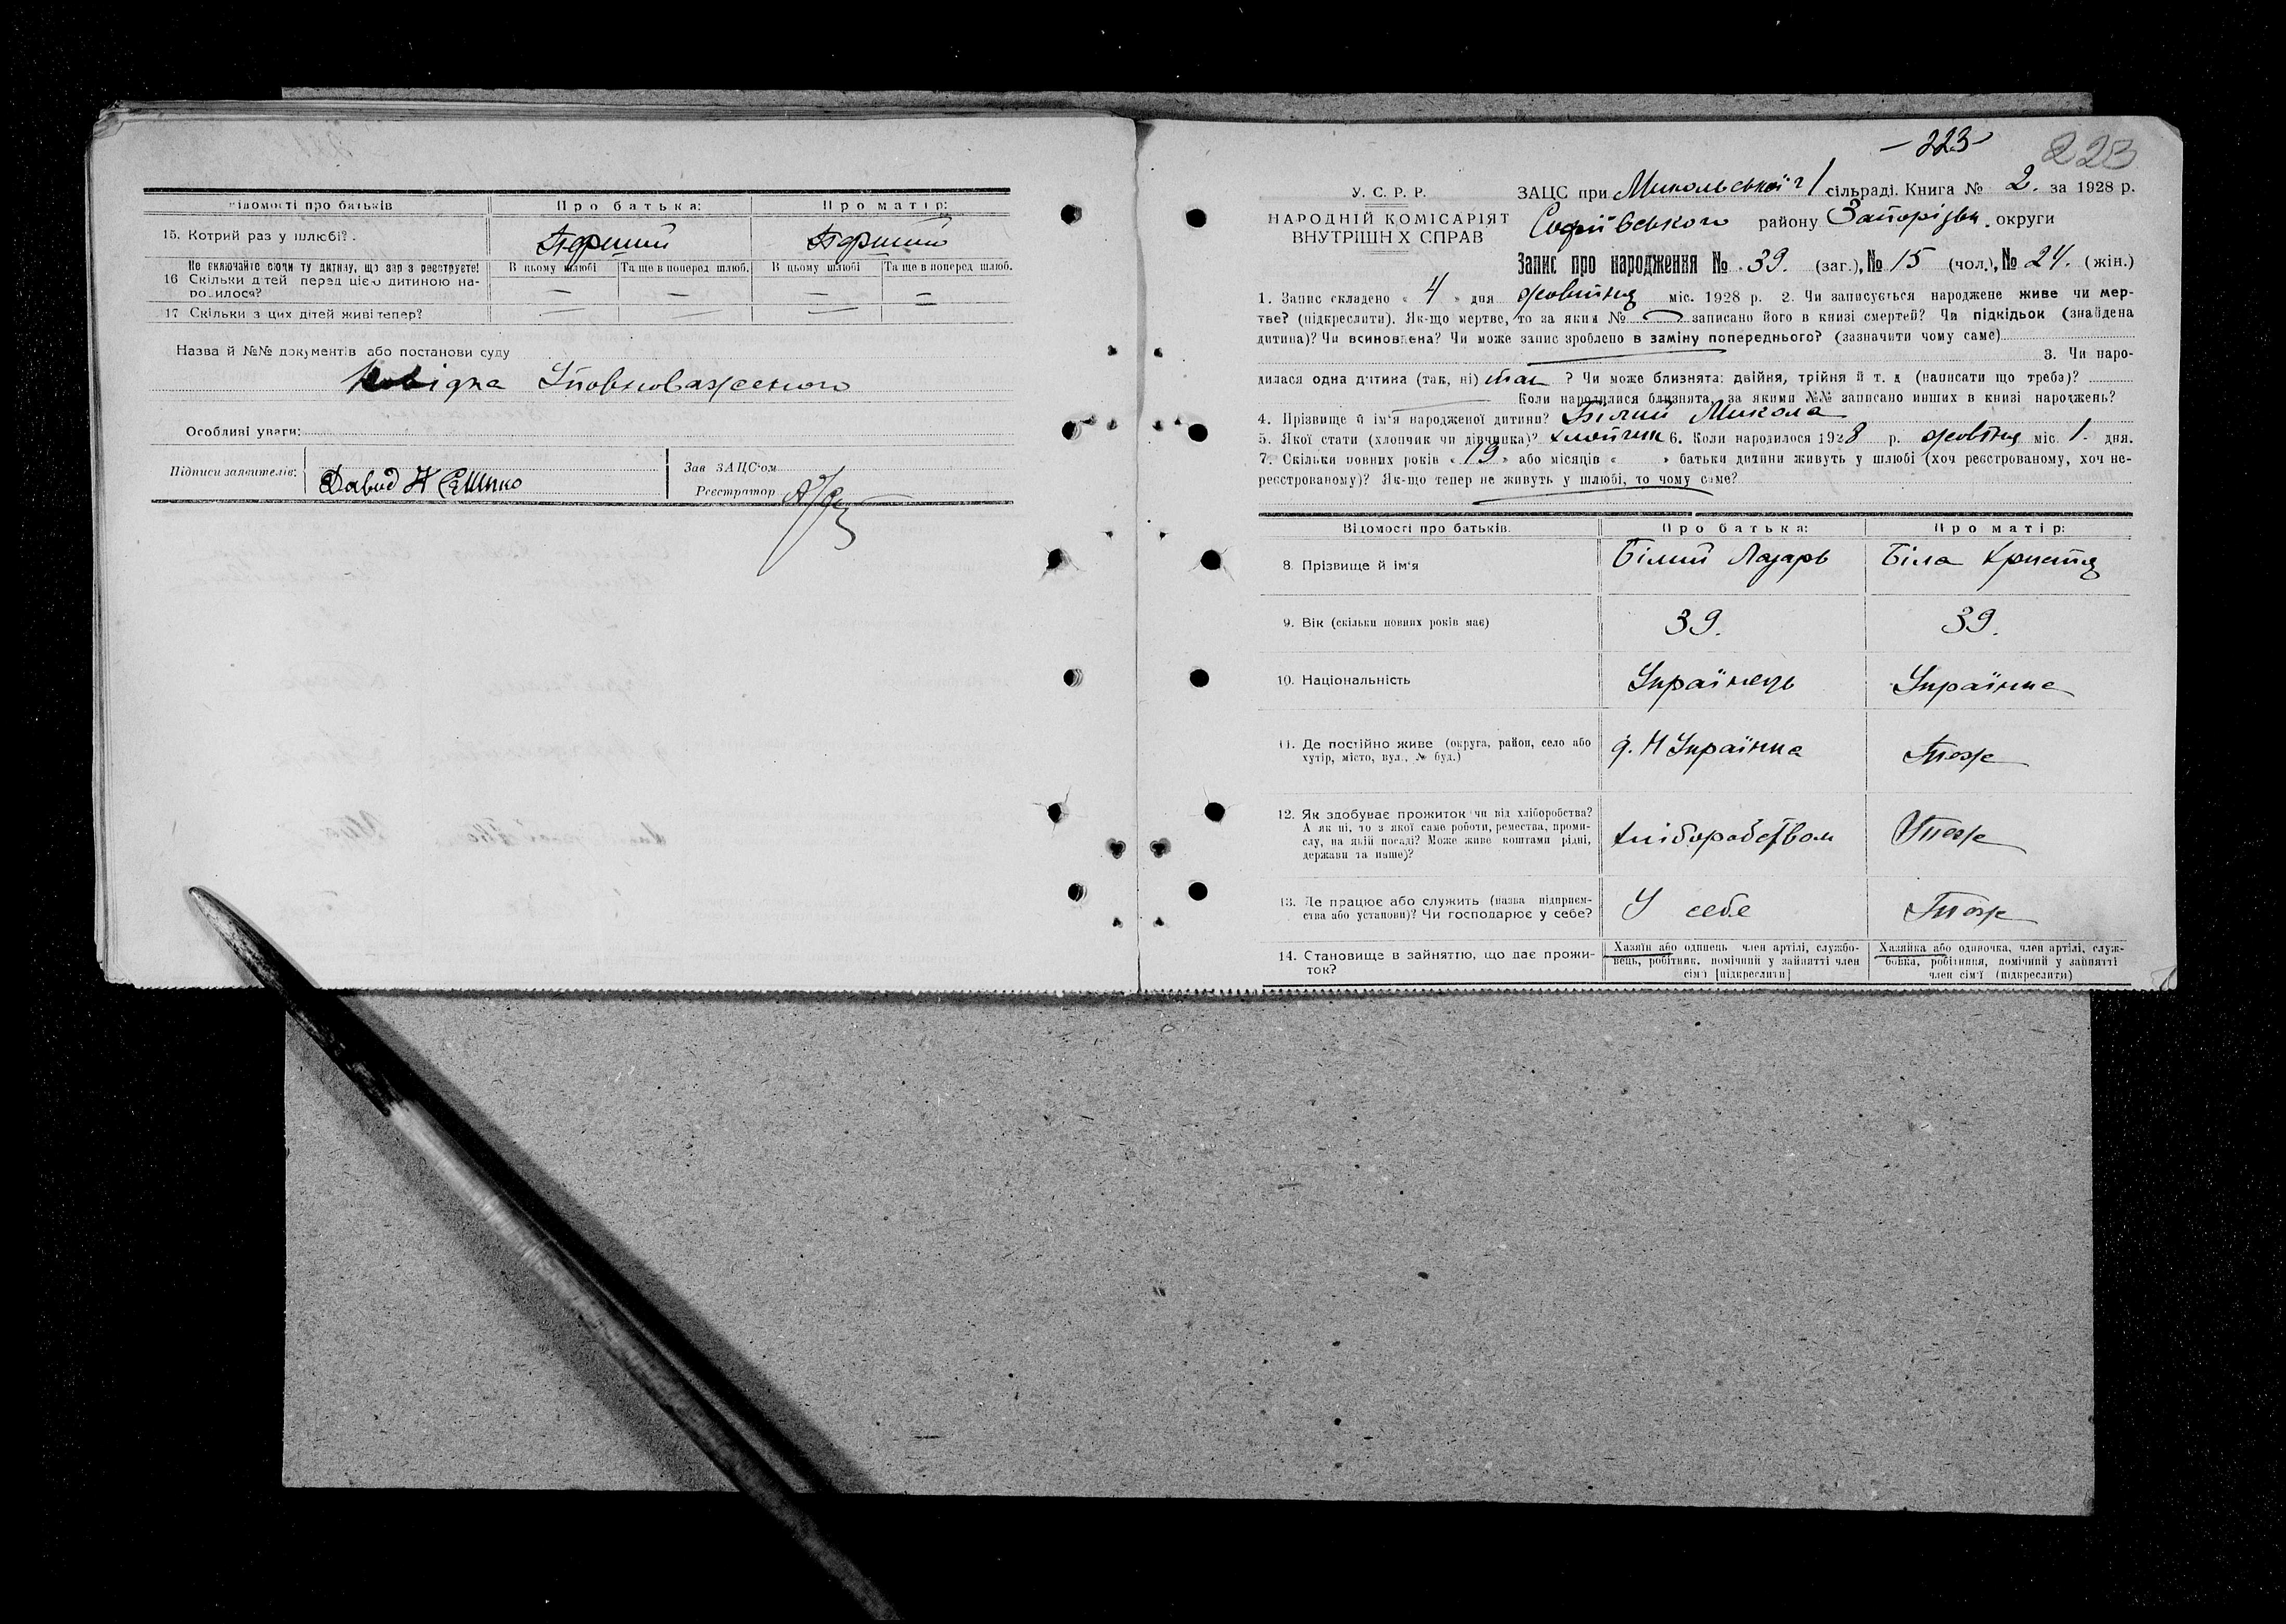 Відомості про батьків
Про батька:
Про матір:
15. Котрий раз у шлюбі?
Перший
Перший
16 Не включайте сюди ту дитину, що зар з реєструєте!
Скільки дітей перед цією дитиною на-
родилося?
В цьому шлюбі
Та ще в поперед шлюб.
В цьому шлюбі
Та ще в поперед шлюб.
— — — —
17 Скільки з цих дітей живі тепер?
— — — —
Назва й №№ документів або постанови суду
Уповноваженого
Особливі уваги:
Підписи заявителів:
Давид
Зав ЗАЦС'ом
Реєстратор
-223-
223
У. С. Р. Р.
НАРОДНІЙ КОМІСАРІЯТ
ВНУТРІШН Х СПРАВ
ЗАЦС при Микольської 1 сільраді. Книга № 2. за 1928 р.
Софіївського району Запорізьк. округи
Запис про народження № 39. (заг.), № 15 (чол.), № 24. (жін.)
1. Запис складено « 4 » дня жовтня міс. 1928 р. 2. Чи записується народжене живе чи мер-
тве? (підкреслити). Як-що мертве, то за яким № — записано його в книзі смертей? Чи підкідьок (знайдена
дитина)? Чи всиновлена? Чи може запис зроблено в заміну попереднього? (зазначити чому саме)
3. Чи наро-
дилася одна дитина (так, ні) так ? Чи може близнята: двійня, трійня й т. д (написати що треба)?
Коли народилися близнята, за якими №№ записано инших в книзі народжень?
4. Прізвище й ім'я народженої дитини? Білий Микола
5. Якої стати (хлопчик чи дівчинка)? хлопчик 6. Коли народилося 1928 р. жовтня міс. 1. дня.
7. Скільки повних років « 19 » або місяців « » батьки дитини живуть у шлюбі (хоч реєстрованому, хоч не-
реєстрованому)? Як-що тепер не живуть у шлюбі, то чому саме?
Відомості про батьків.
Про батька:
Про матір:
8. Прізвище й ім'я
Білий Лазарь
Біла Христя
9. Вік (скільки повних років має)
39.
39.
10. Національність
Українець
Українка
11. Де постійно живе (округа, район, село або
хутір, місто, вул., № буд.)
д. Н Українка
Тоже
12. Як здобуває прожиток чи від хліборобства?
А як ні, то з якої саме роботи, ремества, проми-
слу, на якій посаді? Може живе коштами рідні,
держави та инше)?
хліборобством
Тоже
13. Де працює або служить (назва підприєм-
ства або установи)? Чи господарює у себе?
У себе
Тоже
14. Становище в зайняттю, що дає прожи-
ток?
Хазяїн або одинець член артілі, службо-
вець, робітник, помічний у зайнятті член
сім'ї [підкреслити]
Хазяйка або одиночка, член артілі, служ-
бовка, робітниця, помічний у зайнятті
член сім'ї (підкреслити)